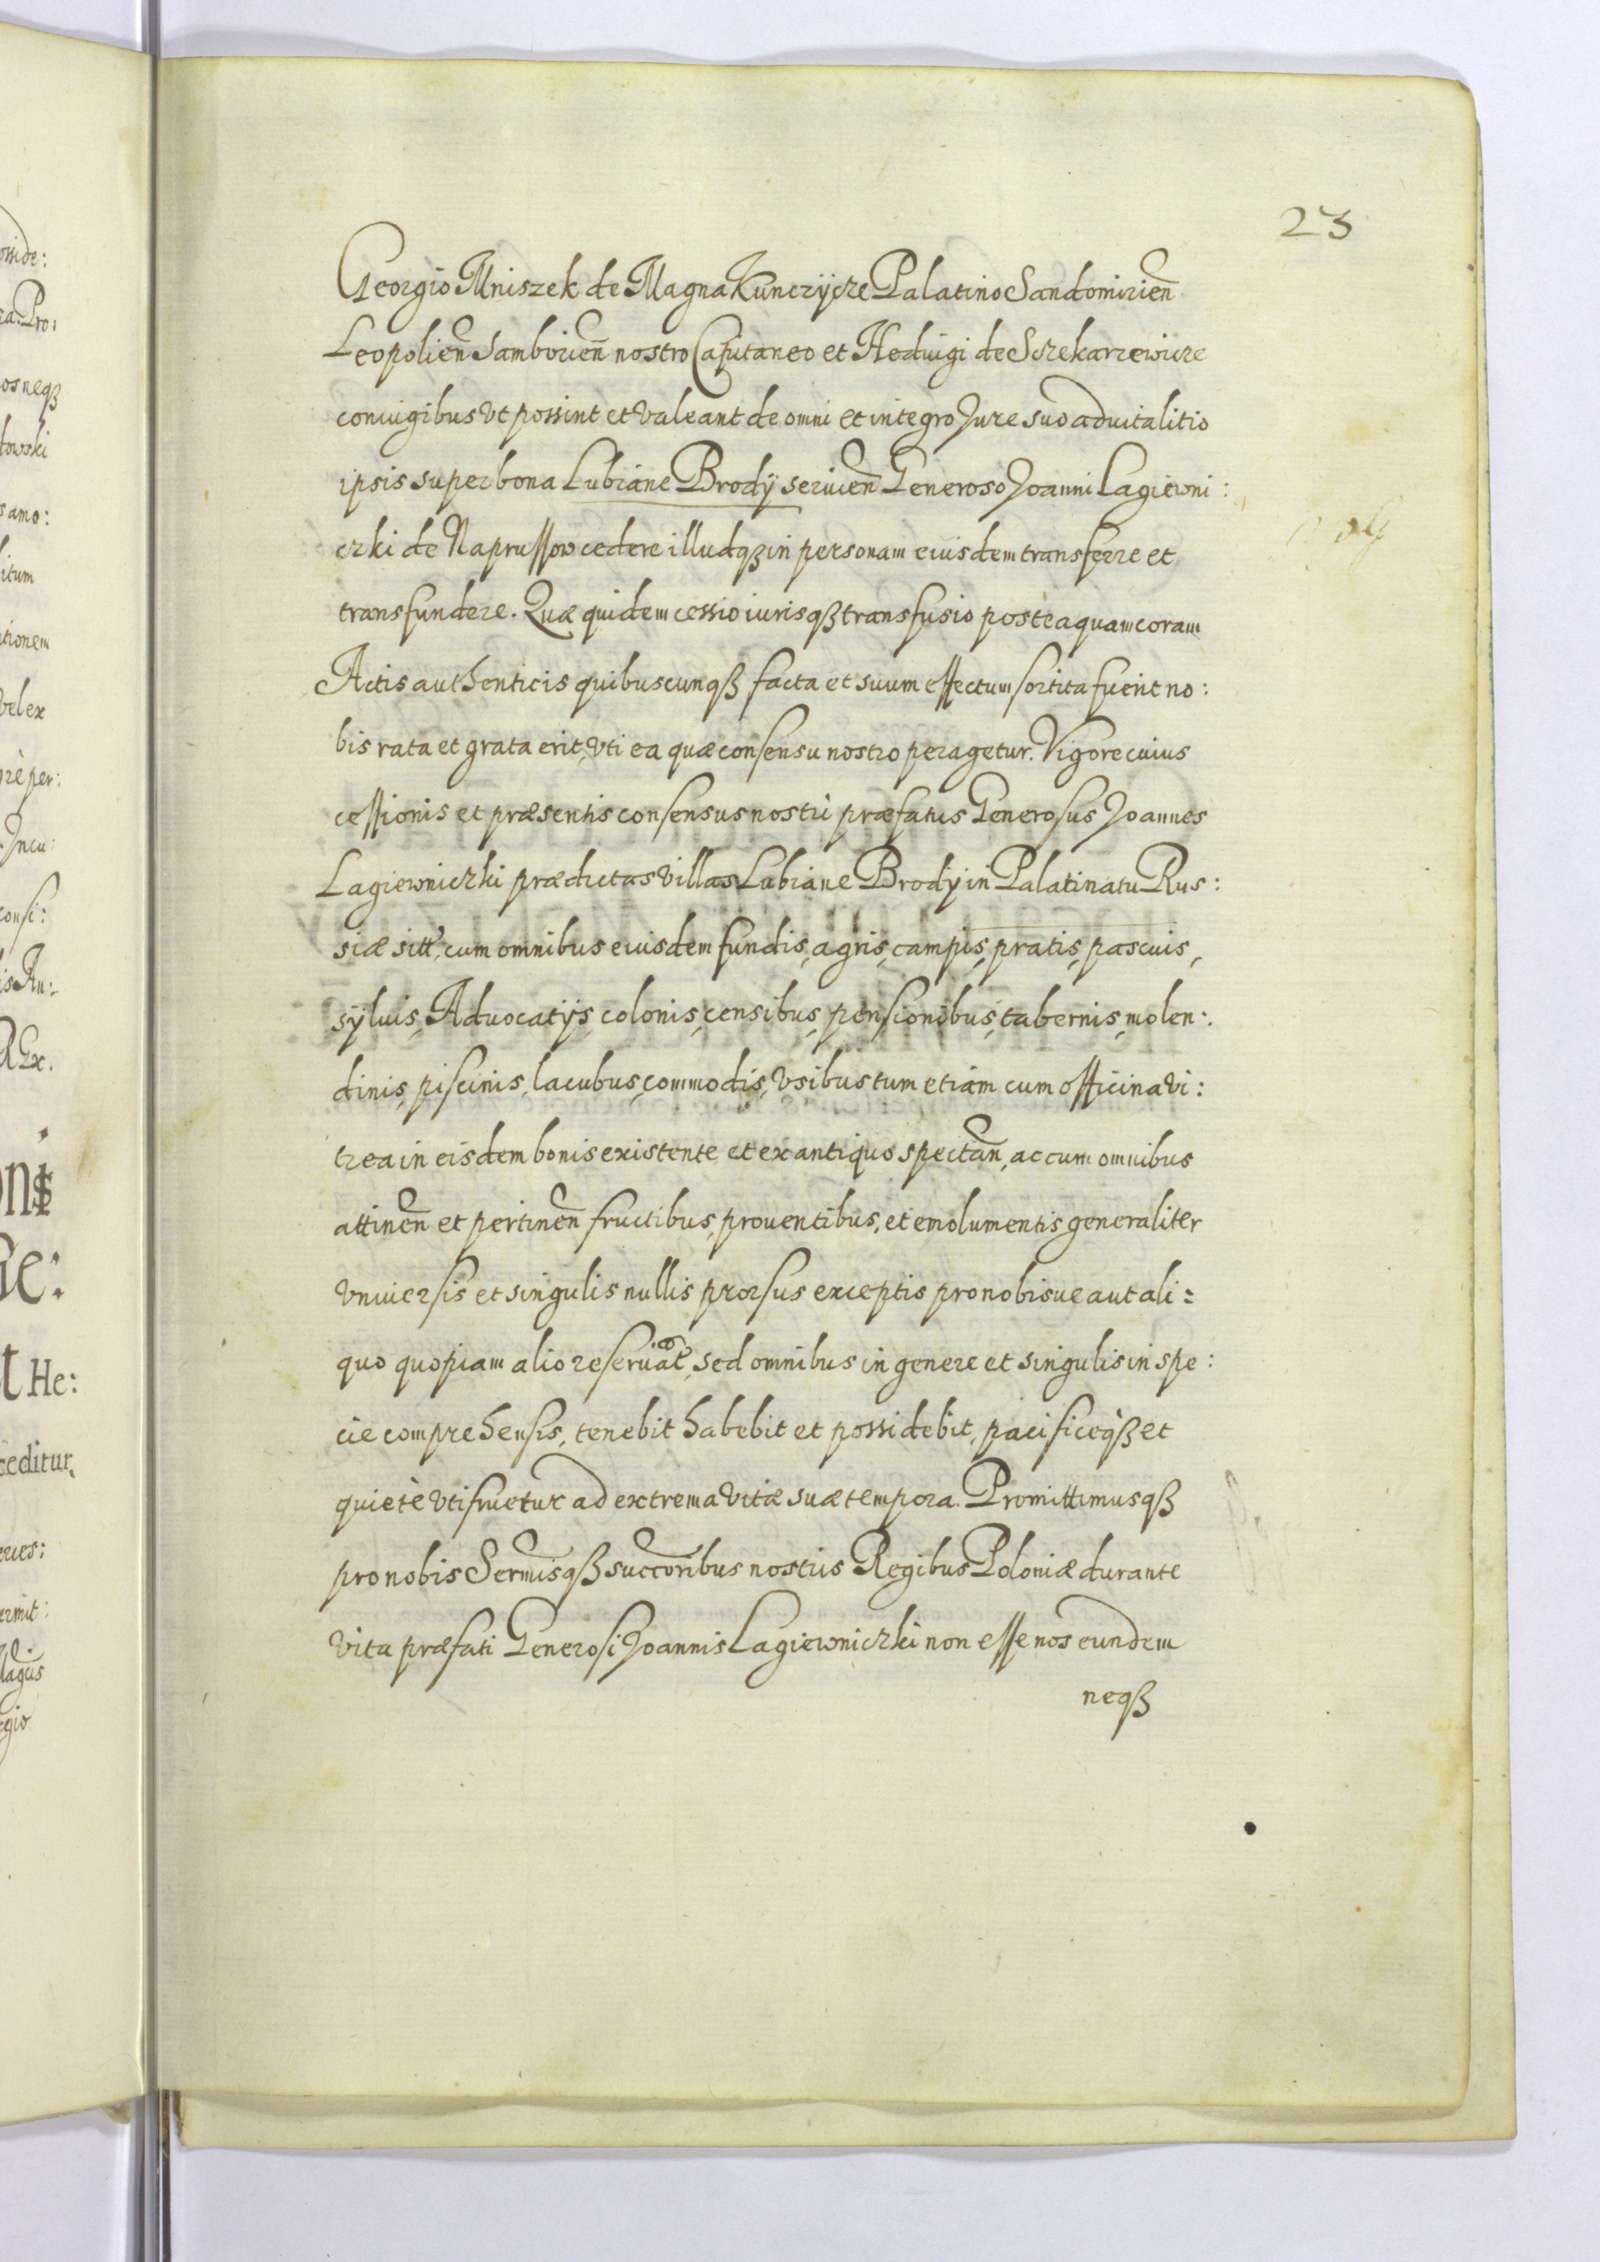 23
Georgio Mniszek de Magna Kunczÿcze Palatino Sandomirien̄
Leopolien̄ Samborien̄ nostro Capitaneo et Heduigi de Sczekarzewicze
coniugibus vt possint et valeant de omni et integro Jure suo aduitalitio
ipsis super bona Lubiane Brodÿ seruien̄ Generoso Joanni Lagiewni:
czki de Naprussow cedere illudqꝫ in personam eiusdem transferre et
transfundere. Quæ quidem cessio iurisqꝫ transfusio posteaquam coram
Actis authenticis quibuscunqꝫ facta et suum effectum sortita fuerit no:
bis rata et grata erit, vti ea quæ consensu nostro peragetur. Vigore cuius
cessionis et præsentis consensus nostri præfatus Generosus Joannes
Lagiewniczki prædictas villas Lubiane Brodÿ in Palatinatu Rus:
siæ sitt, cum omnibus eiusdem fundis, agris, campis, pratis, pascuis,
sÿluis, Aduocatÿs, colonis, censibus, pensionibus, tabernis, molen:
dinis, piscinis, lacubus, commodis, vsibus tum etiam cum officina vi:
trea in eisdem bonis existente et ex antiquo spectan̄, ac cum omnibus
attinen̄ et pertinen̄ fructibus, prouentibus, et emolumentis generaliter
vniuersis et singulis nullis prorsus exceptis pro nobisue aut ali:
quo quopiam alio reseruat, sed omnibus in genere et singulis in spe:
cie comprehensis, tenebit habebit et possidebit, pacificeqꝫ et
quietè vtifruetur ad extrema vitæ suæ tempora. Promittimusqꝫ
pro nobis Sermisqꝫ succoribus nostris Regibus Poloniæ durante
vita præfati Generosi Joannis Lagiewniczki non esse nos eundem
neqꝫ